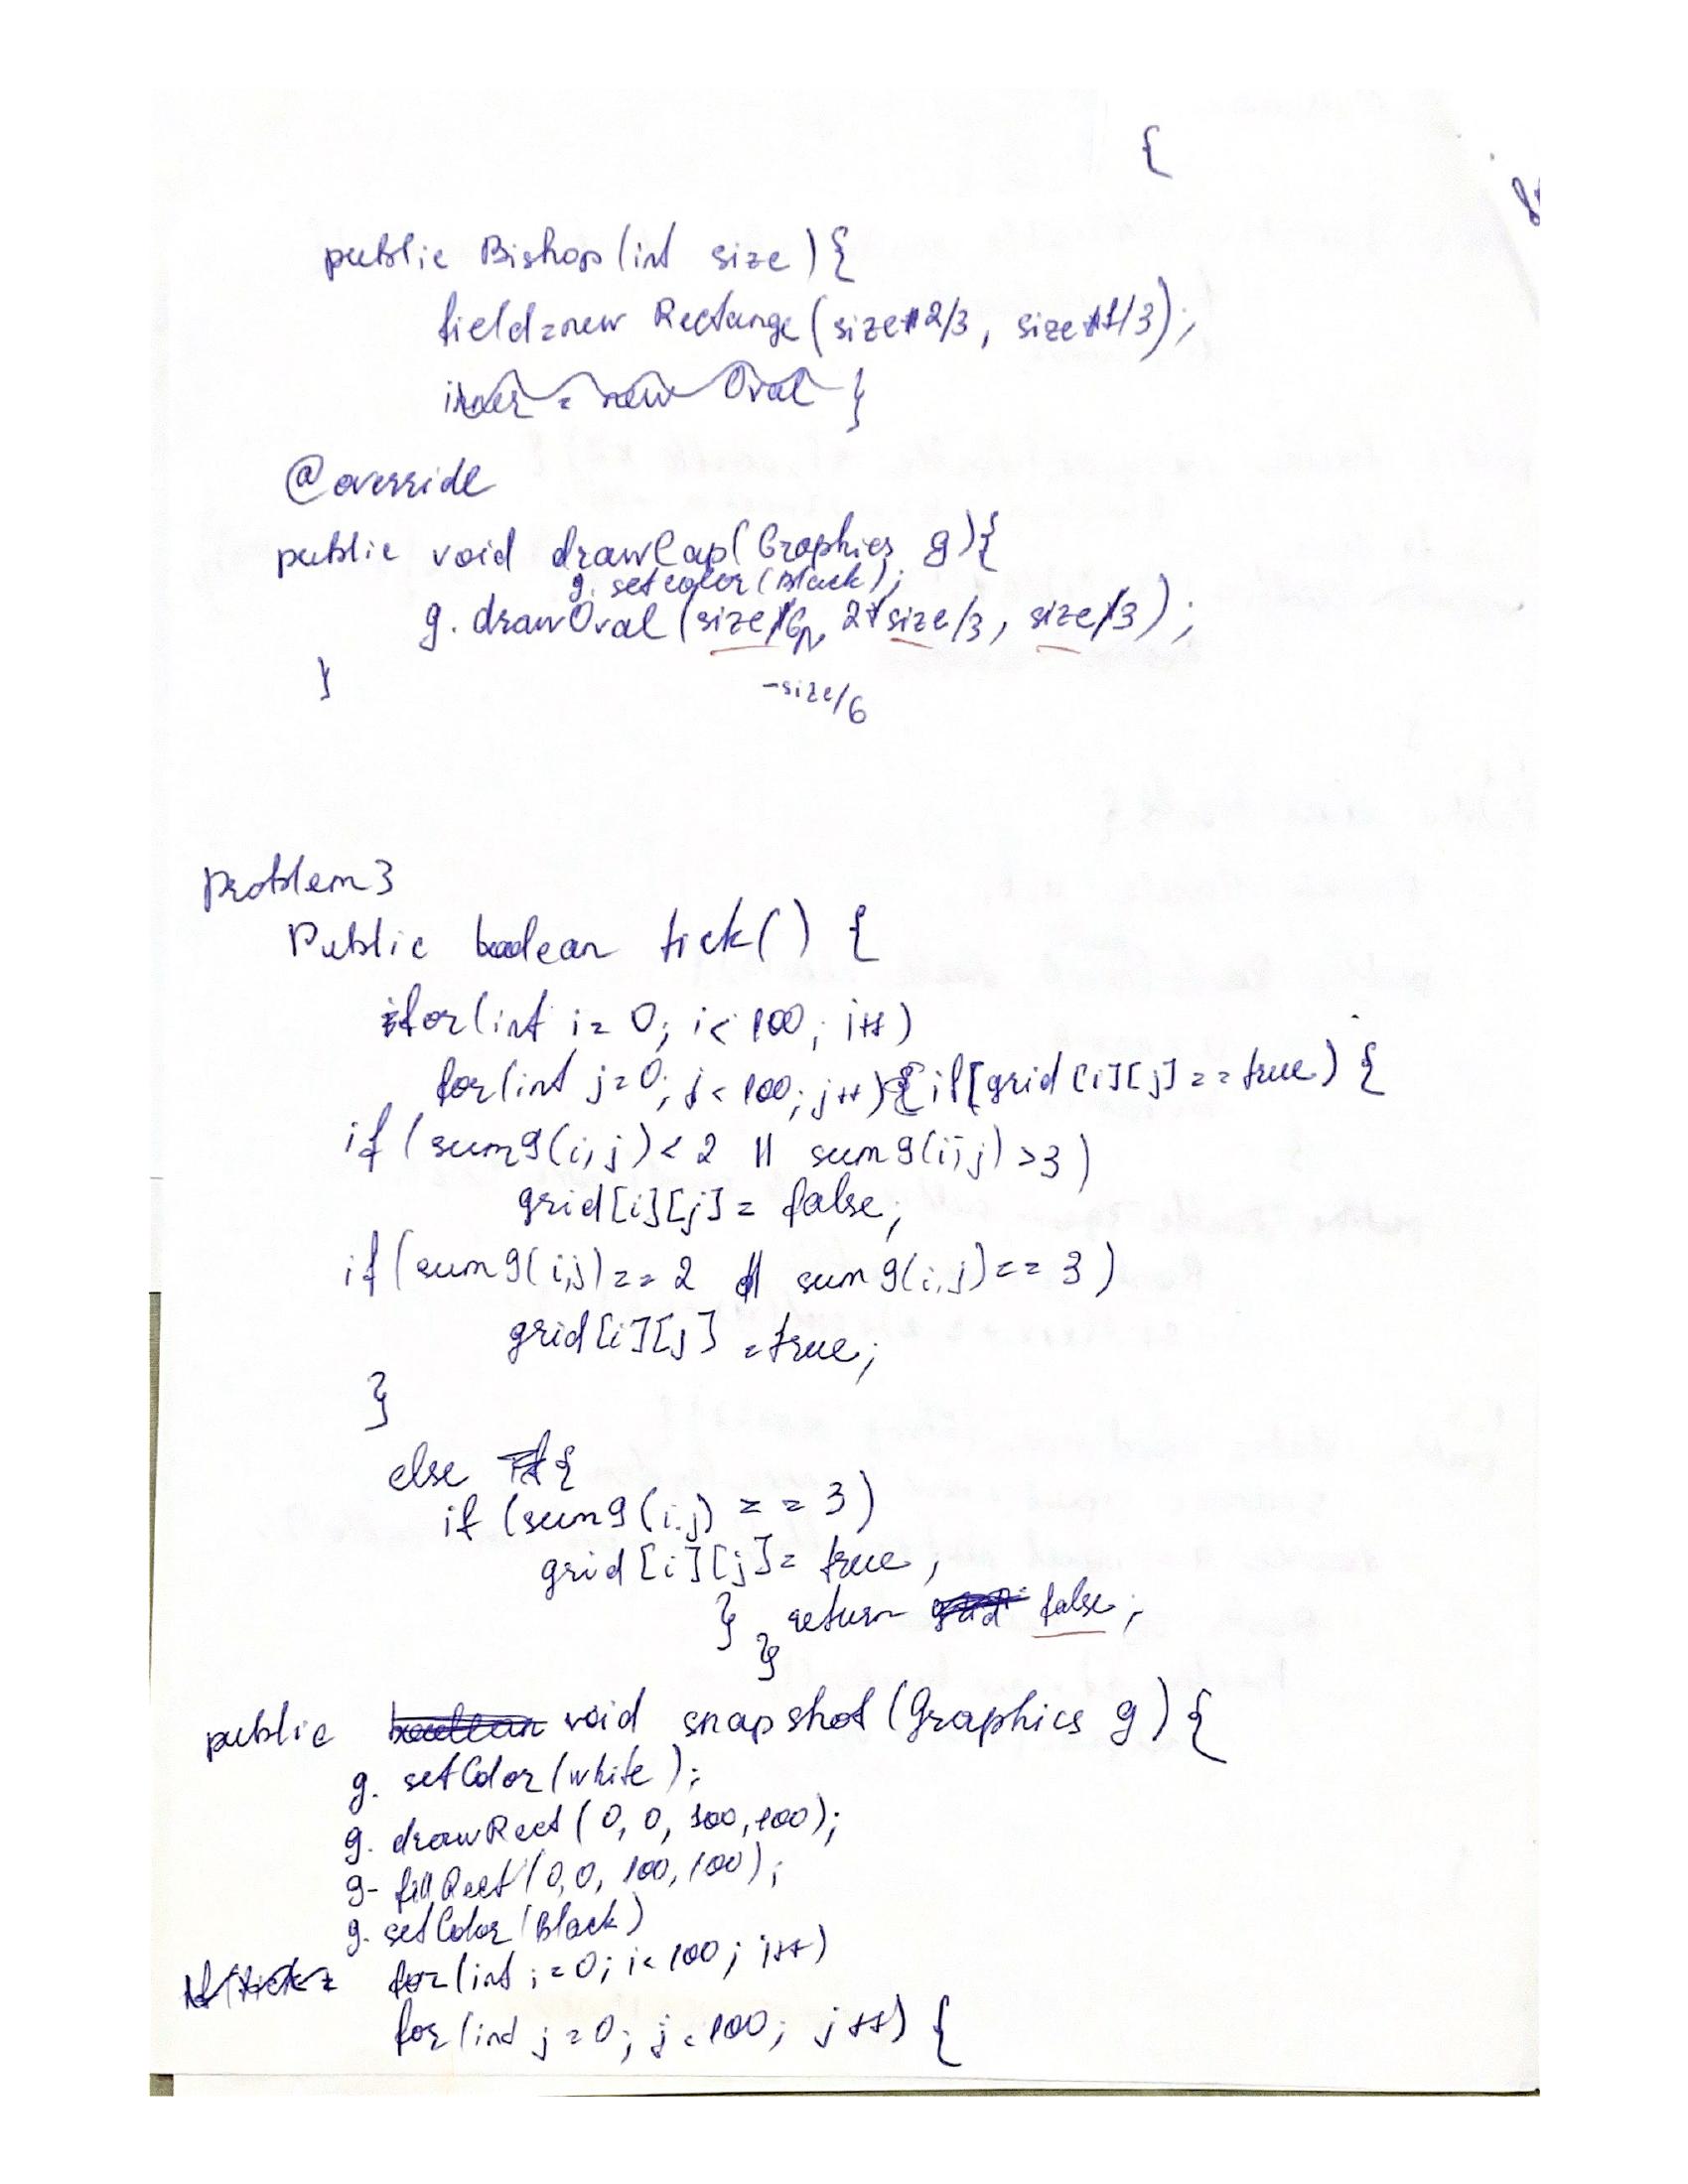 {
public Bishop(int size){
field=new Rectange(size*2/3, size*1/3);
}
@override
public void drawCap(Graphics g){
g. setcolor(Black);
g. drawOval(size/6, 2*size/3, size/3);
-size/6
}
Problem3
Public boolean tick() {
for(int i=0; i<100; i++)
for(int j=0; j<100; j++){if[grid[i][j]==true) {
if (sum9(i,j)<2 || sum9(i,j)>3)
grid[i][j]= false;
if(sum9(i,j)==2 || sum9(i,j)==3)
grid[i][j]=true;
}
else {
if (sum9(i,j) == 3)
grid[i][j]= true;
} return false;
}
public void snapshot(Graphics g){
g. setColor(white);
g. drawRect(0, 0, 100, 100);
g. fillRect(0,0, 100, 100);
g. setColor(Black)
for(int i=0; i<100; i++)
for(int j=0; j<100; j++) {